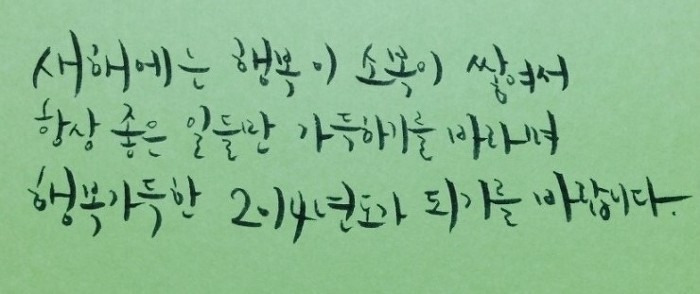 새해에는 행복이 소복이 쌓여서
항상 좋은 일들만 가득하기를 바라며
행복가득한 2014년도가 되기를 바랍니다.